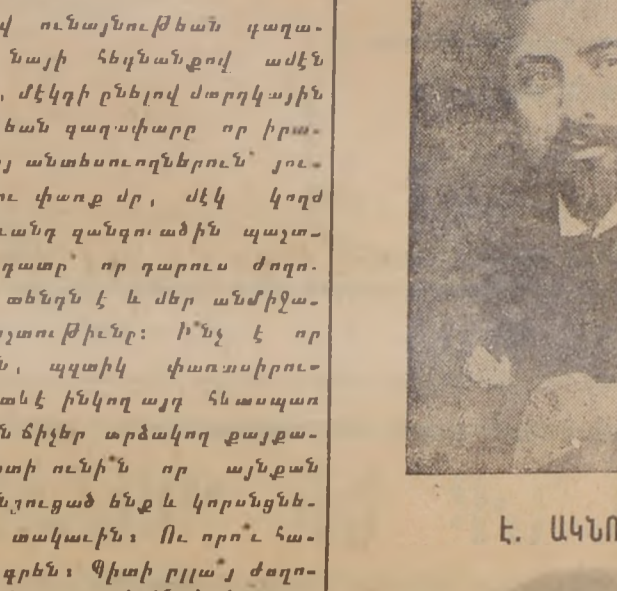 ունայնութեան գաղա-
նայի հեգնանքով ամէն
մէկդի ընելով մարդկային
եան գաղափարը որ իրա-
անտեսուողներուն յու-
փառք մը, մէկ կողմ
զանգուածին պաշտ-
դատը որ դարուս ժողո-
տենդն է և մեր անմիջա-
Ի՞նչ է որ
պզտիկ փառասիրու-
ինկող այդ հետապառ
ճիչեր արձակող քայքա-
ունի՞ն որ այնքան
ենք և կորսնցնե-
տակաւին։ Ու որո՞ւ հա-
գրեն։ Պիտի ըլլա՞յ ժողո-
Է. ԱԿՆՈ